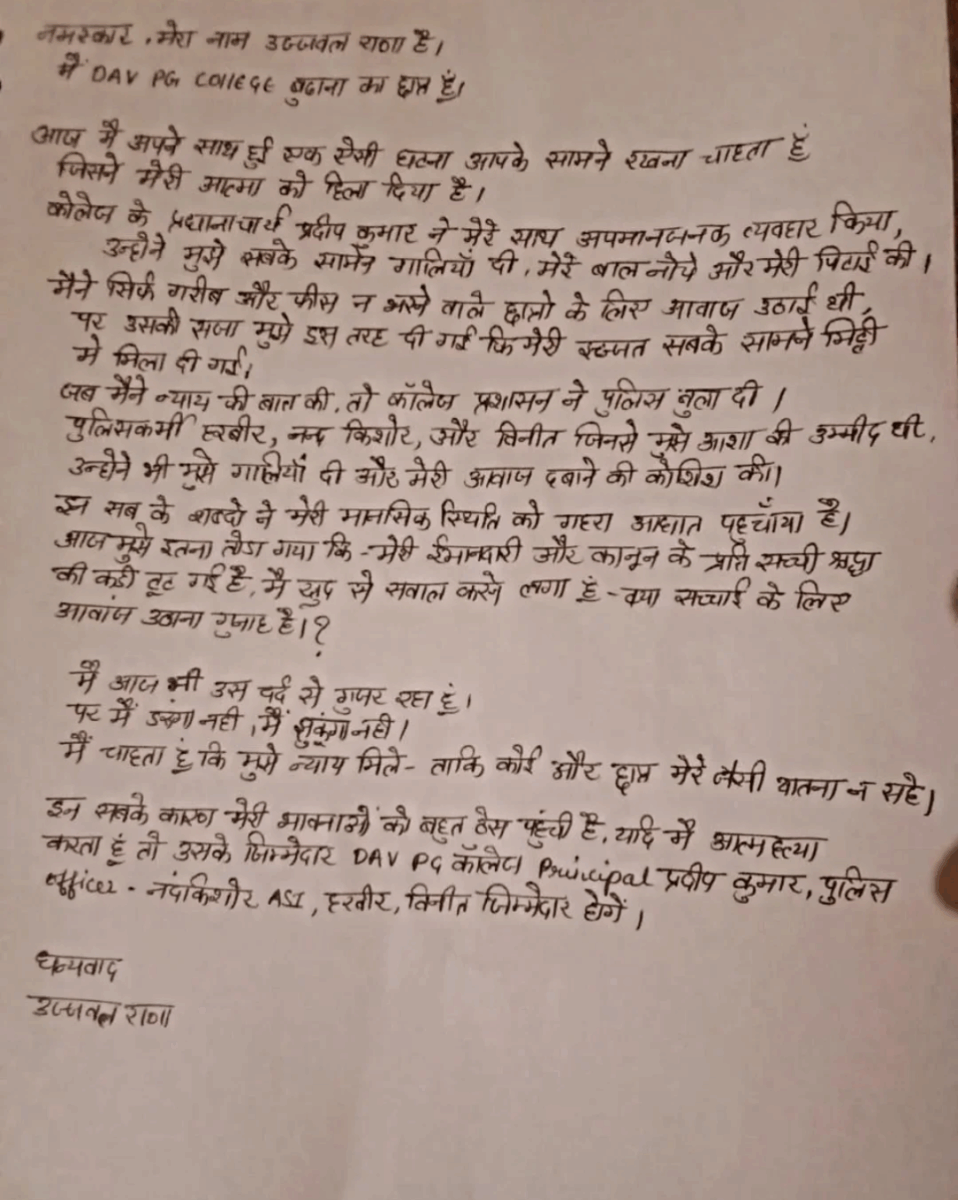 नमस्कार, मेरा नाम उज्जवल राणा है।
मैं DAV PG COllEGE बुढाना का छात्र हूं।
आज मैं अपने साथ हुई एक ऐसी घटना आपके सामने रखना चाहता हूं
जिसने मेरी आत्मा को हिला दिया है।
कोलेज के प्रधानाचार्य प्रदीप कुमार ने मेरे साथ अपमानजनक व्यवहार किया,
उन्होने मुझे सबके सामने गालियाँ दी, मेरे बाल नोचे और मेरी पिटाई की।
मैने सिर्फ गरीब और फीस न भरने वाले छात्रो के लिए आवाज उठाई थी,
पर उसकी सजा मुझे इस तरह दी गई कि मेरी इज्जत सबके सामने मिट्टी
मे मिला दी गई।
जब मैने न्याय की बात की, तो कॉलेज प्रशासन ने पुलिस बुला दी।
पुलिसकर्मी हरबीर, नन्द किशोर, और विनीत जिनसे मुझे आशा की उम्मीद थी,
उन्होने भी मुझे गालियाँ दी और मेरी आवाज दबाने की कोशिश की।
इन सब के शब्दो ने मेरी मानसिक स्थिति को गहरा आघात पहुचाँया है।
आज मुझे इतना तोडा गया कि - मेरी ईमानदारी और कानून के प्रति सच्ची श्रद्धा
की कडी टूट गई है, मै खुद से सवाल करने लगा हूं - क्या सच्चाई के लिए
आवांज उठाना गुनाह है।?
मै आज भी उस दर्द से गुजर रहा हूं।
पर मैं डरूंगा नही, मैं झुकूंगा नही।
मैं चाहता हूं कि मुझे न्याय मिले - ताकि कोई और छात्र मेरे जैसी यातना न सहे।
इन सबके कारण मेरी भावनाओं को बहुत ठेस पहुंची है, यदि मै आत्महत्या
करता हूं तो उसके जिम्मेदार DAV PG कॉलेज Principal प्रदीप कुमार, पुलिस
officer - नंदकिशोर ASI, हरवीर, विनीत जिम्मेदार होगें।
धन्यवाद
उज्जवल राणा